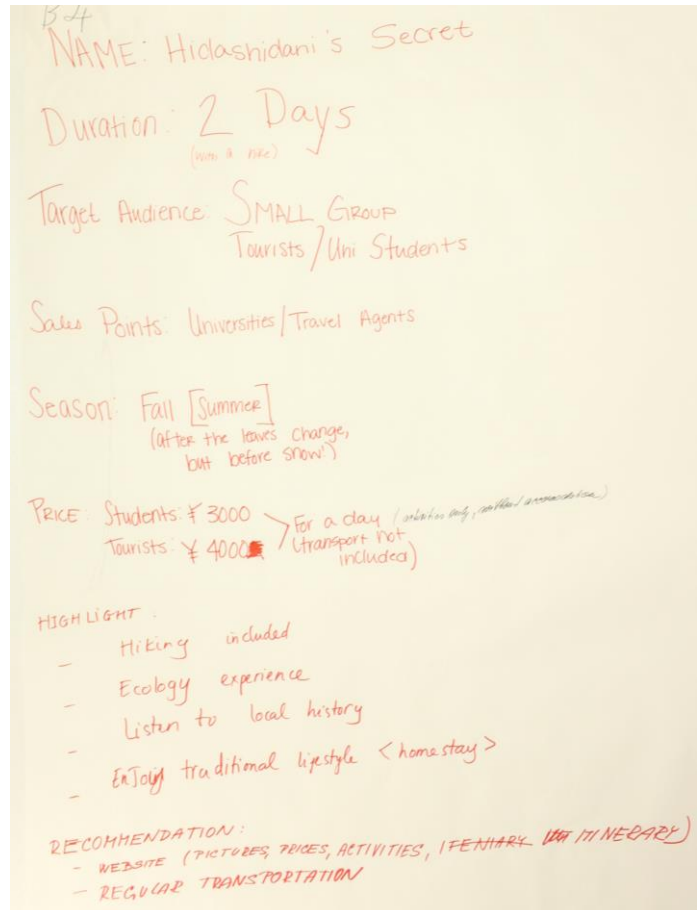 B4
NAME: Hidashidani's Secret
Duration: 2 Days
(with a hike)
Target Audience: SMALL GROUP
Tourists/Uni Students
Sales Points: Universities/Travel Agents
Season: Fall [Summer]
(after the leaves change,
but before snow!)
PRICE: Students: ¥ 3000
Tourists: ¥ 4000
For a day (activities only, without accommodation)
(transport not
included)
HIGHLIGHT:
- Hiking included
- Ecology experience
- Listen to local history
- Enjoy traditional lifestyle <homestay>
RECOMMENDATION:
- WEBSITE (PICTURES, PRICES, ACTIVITIES, ITINERARY)
- REGULAR TRANSPORTATION